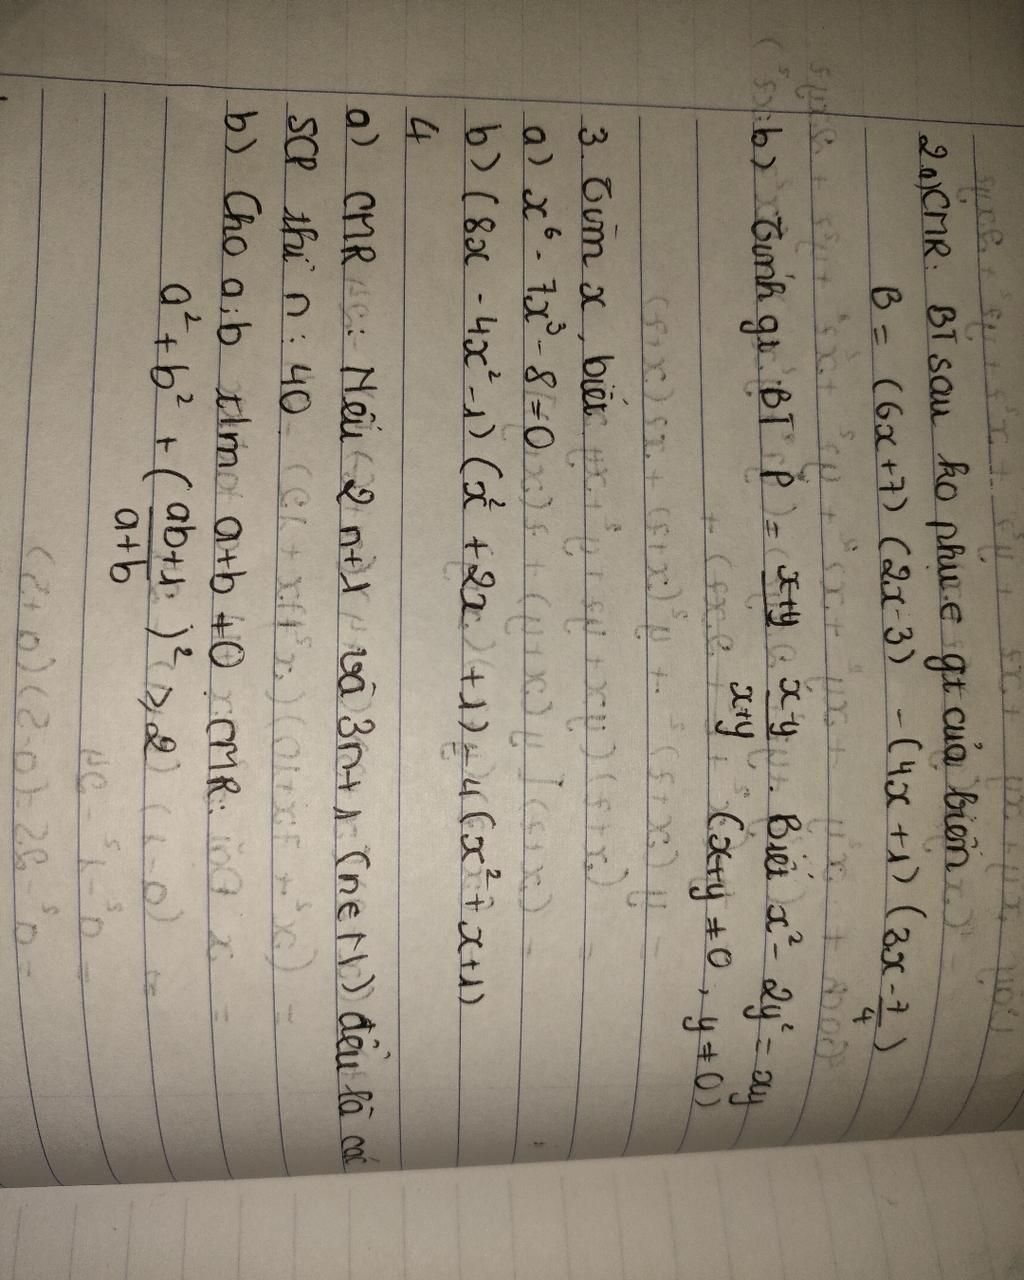 2.a) CMR: BT sau ko phụ ∈ gt của biến
B = (6x+7)(2x-3) - (4x+1)(3x-7/4)
b) Tính gt BT P = x+y x-y/x+y. Biết x² - 2y² = xy
(x+y ≠ 0, y ≠ 0)
3. Tìm x, biết
a) x⁶ - 7x³ - 8 = 0
b) (8x - 4x² - 1)(x² + 2x + 1) = 4(x² + x + 1)
4
a) CMR: Nếu 2n+1 và 3n+1 (n∈N) đều là cá
SCP thì n : 40
b) Cho a;b t/m a+b ≠ 0 CMR:
a² + b² + (ab+1/a+b)² ≥ 2